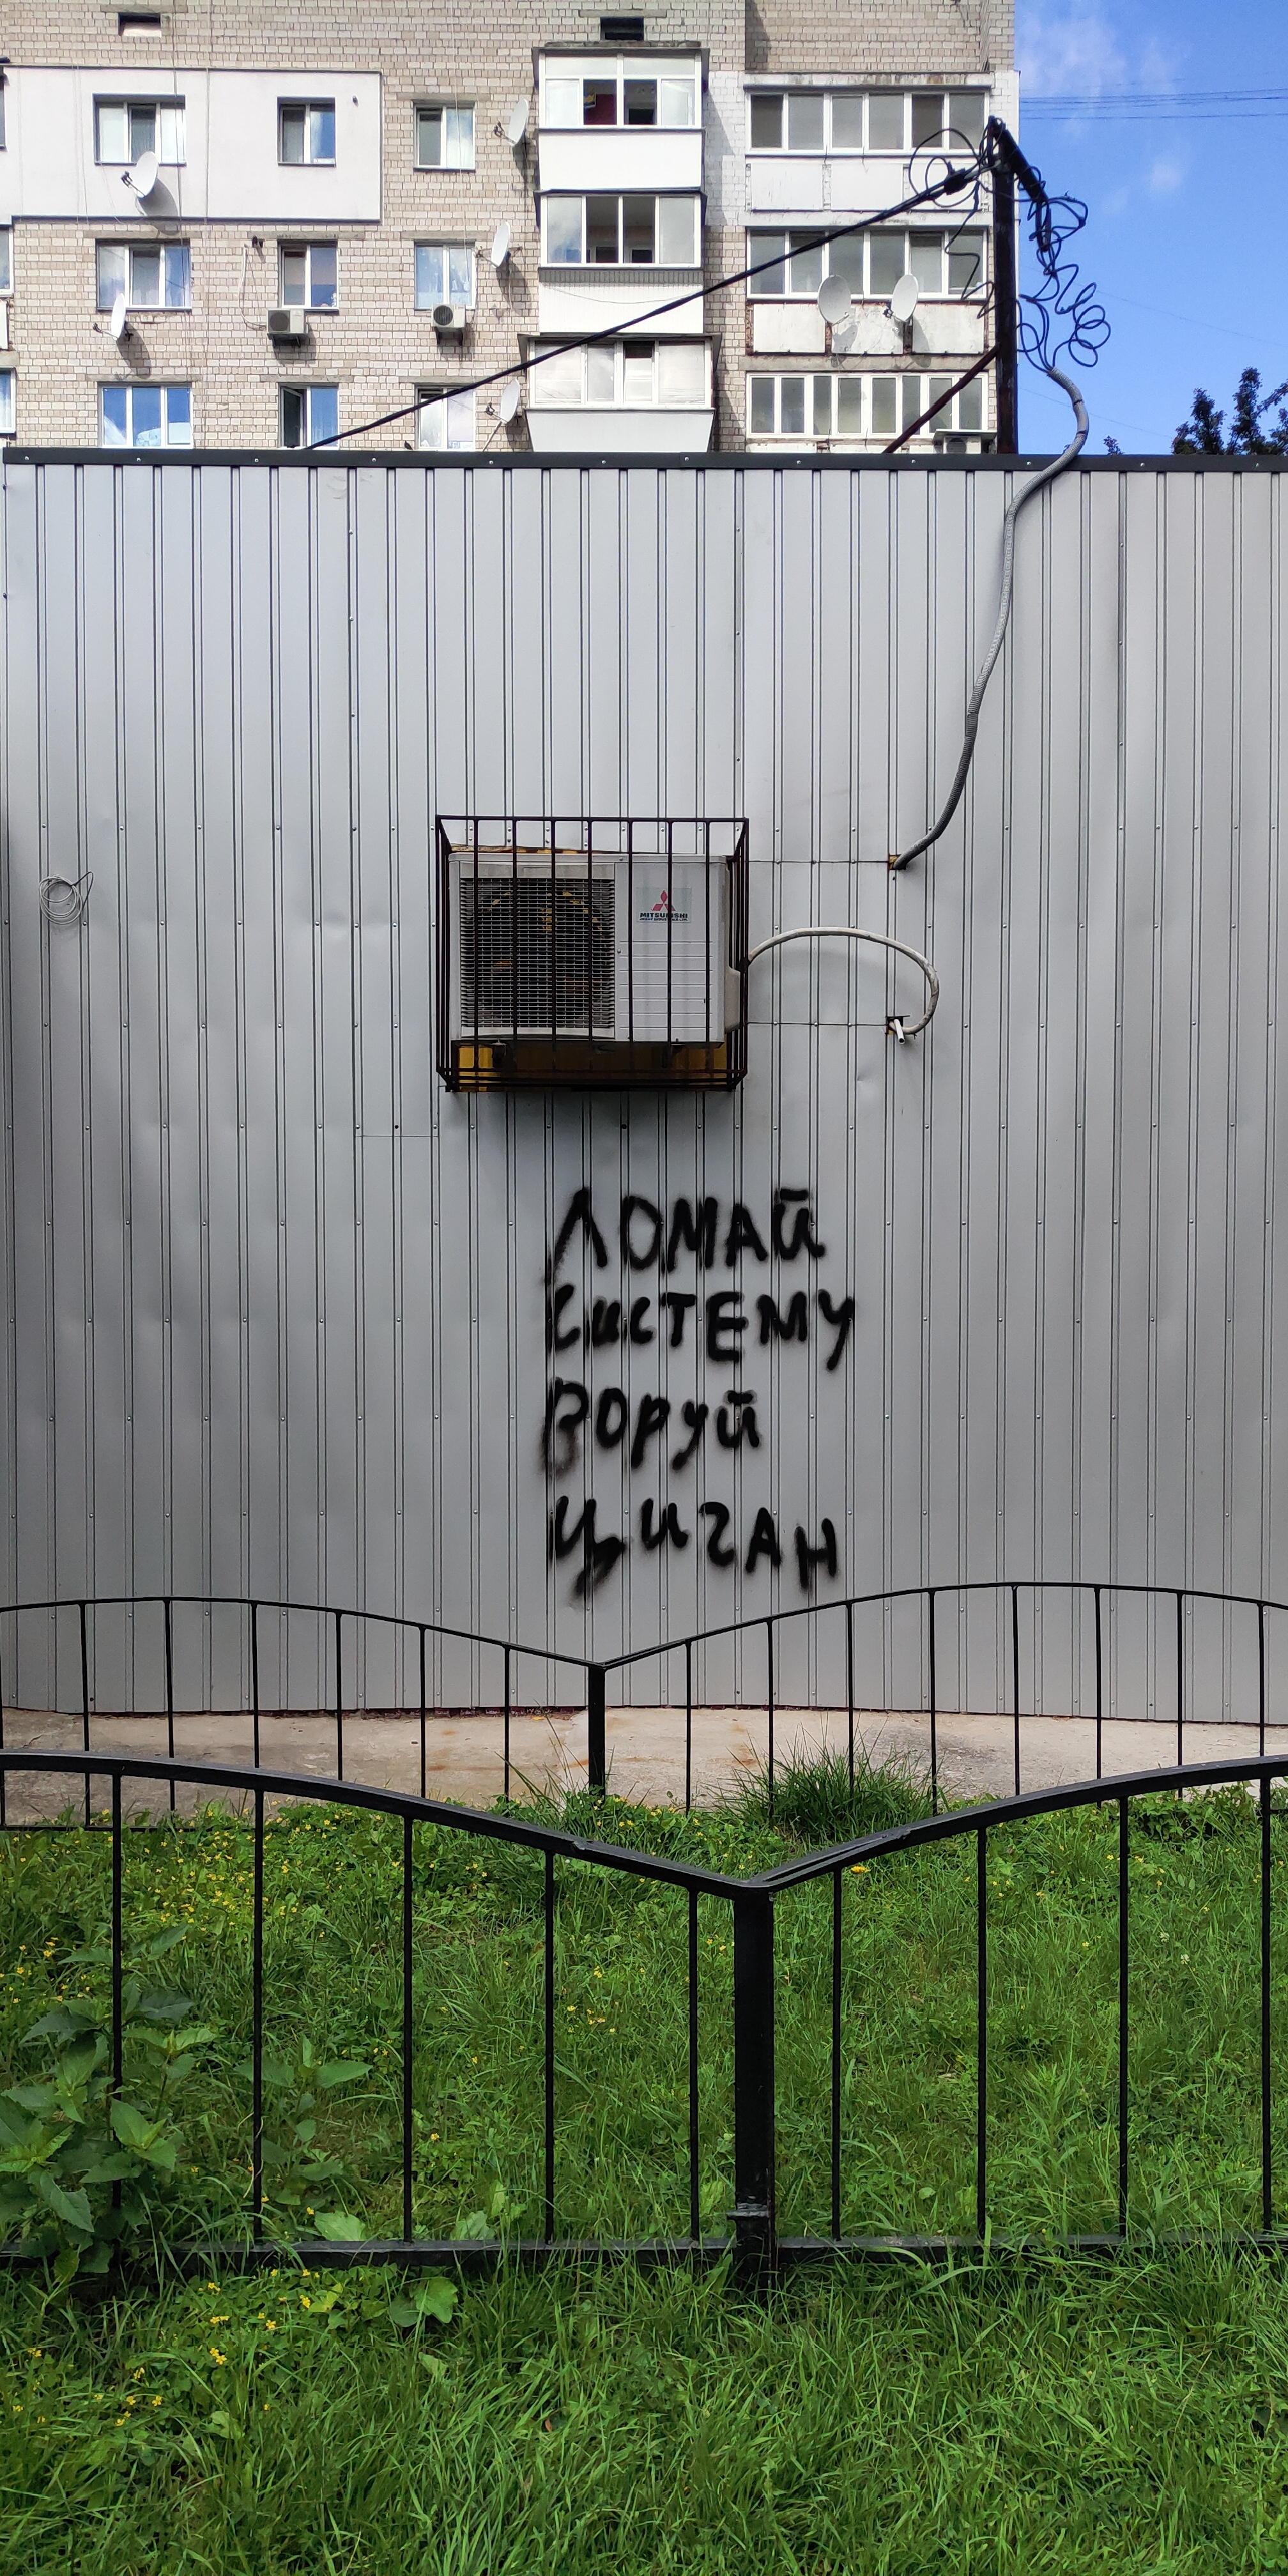 MITSUBISHI
ЛОМАЙ
СИСТЕМУ
ВОРУЙ
ЦИГАН